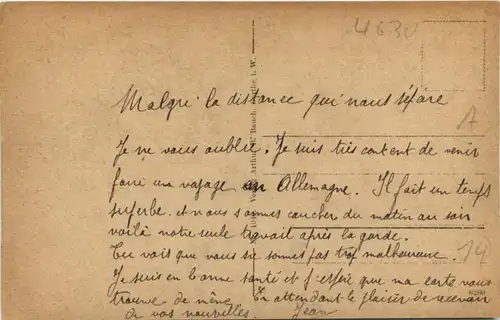 4630
Malgrè la distance qui nous séfare
Je ne vous oublie. Je suis très content de venir
faire un voyage en Allemagne. Il fait un temps
superbe. et nous sommes coucher du matin au soir
voilà notre seule travail après la garde.
Tu vois que vous si sommes pas trop malheureux.
Je suis en bonne santé et j'espère que ma carte vous
trouve de même. En attendant le plaisir de recevoir
de vos nouvelles. Jean